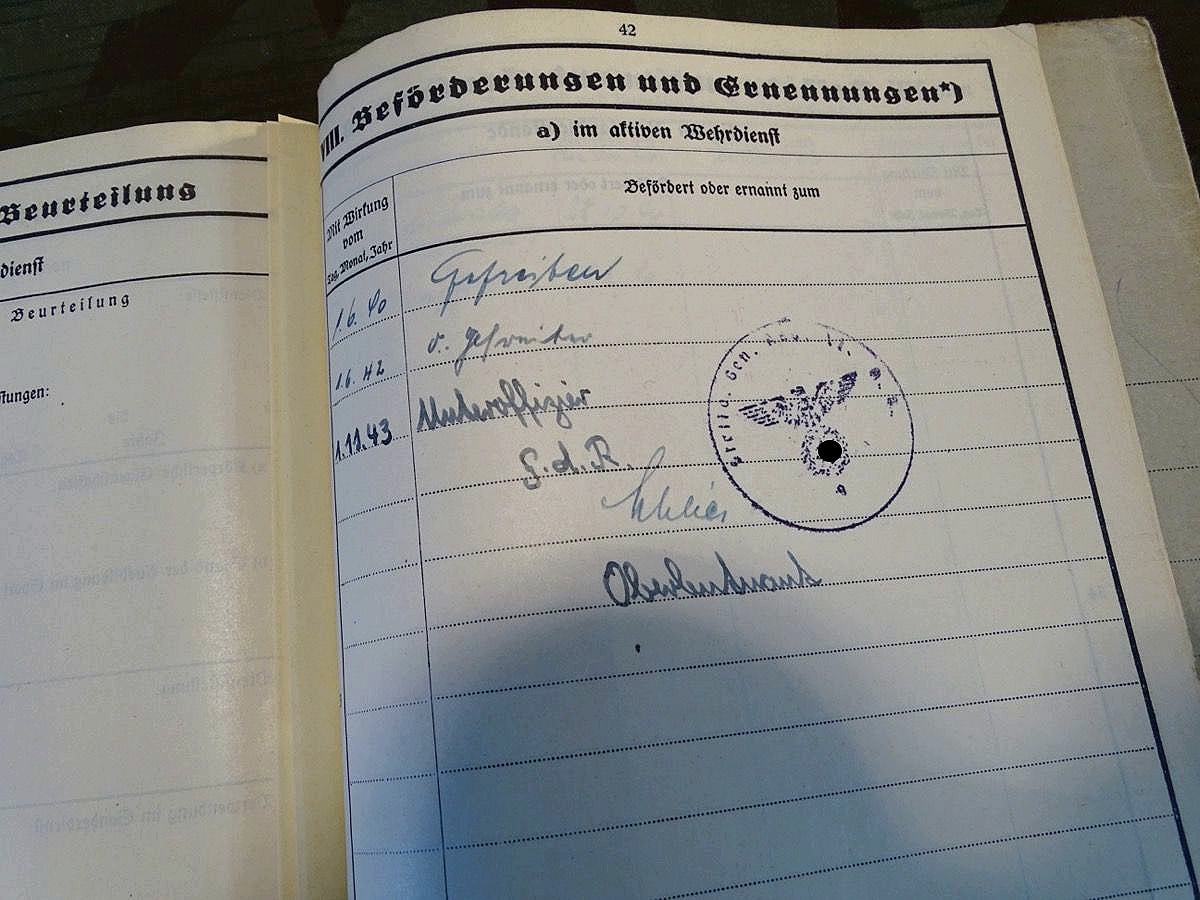 Beurteilung
dienst
Beurteilung
stungen:
42
VIII. Beförderungen und Ernennungen*)
a) im aktiven Wehrdienst
Mit Wirkung
vom
Tag, Monat, Jahr
Befördert oder ernannt zum
1.6.40 Gefreiten
1.6.42 O. Gefreiter
1.11.43 Unteroffizier
d. R.
Oberleutnant